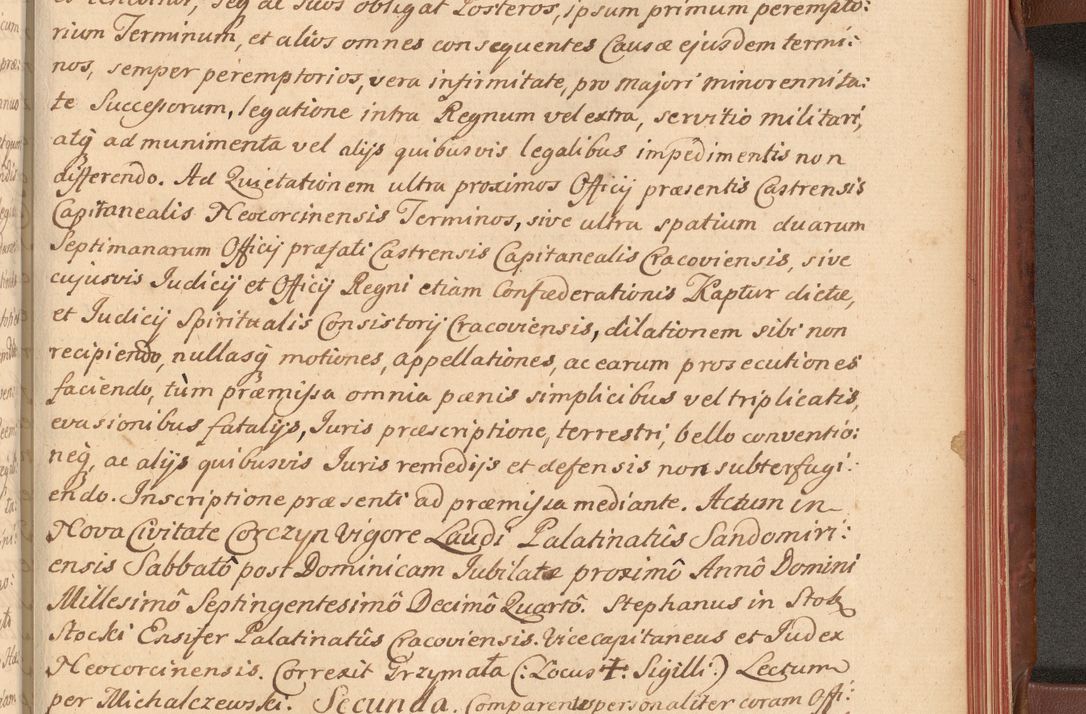 et tenebitur, seq ac suos obligat Posteros, ipsum primum perempto:
rium Terminum, et alios omnes consequentes Causæ ejusdem termi:
nos, semper peremptorios, vera infirmitate, pro majori minorennita:
te Successorum, legatione intra Regnum vel extra, servitio militari,
atq̃ ad munimenta vel alijs quibusvis legalibus impedimentis non
differendo. Ad Quietationem ultra proximos Officij præsentis Castrensis
Capitanealis Neocorcinensis Terminos, sive ultra spatium duarum
Septimanarum Officij præfati Castrensis Capitanealis Cracoviensis, sive
cujusvis Iudicij et Officij Regni etiam Confæderationis Kaptur dictæ,
et Iudicij Spiritualis Consistorij Cracoviensis, dilationem sibi non
recipiendo, nullasq̃ motiones, appellationes, ac earum prosecutiones
faciendo, tùm præmissa omnia pænis simplicibus vel triplicatis,
evasionibus fatalijs, Iuris præscriptione, terrestri, bello conventio:
neq̃, ac alijs quibusvis Iuris remedijs et defensis non subterfugi:
endo. Inscriptione præsenti ad præmissa mediante. Actum in
Nova Civitate Corczyn Vigore Laudi Palatinatûs Sandomiri:
ensis Sabbatô post Dominicam Iubilate proximô Annô Domini
Millesimô Septingentesimô Decimô Quartô. Stephanus in Stok
Stocki Ensifer Palatinatûs Cracoviensis. Vicecapitaneus et Iudex
Neocorcinensis. Correxit Grzymała (: Locus ✝: Sigilli :) Lectum
per Michalczewski. Secunda. Comparens personaliter coram Offi: